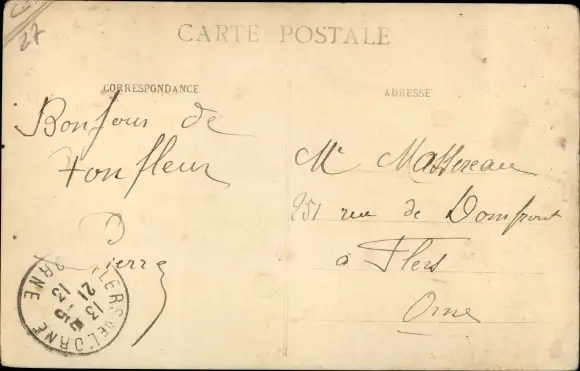 27
CARTE POSTALE
CORRESPONDANCE
ADRESSE
Bonjour de
Honfleur
Pierre
Mr Massereau
251 rue de Domfront
à Flers
Orne
FLERS DE L'ORNE
ORNE
13
21
13